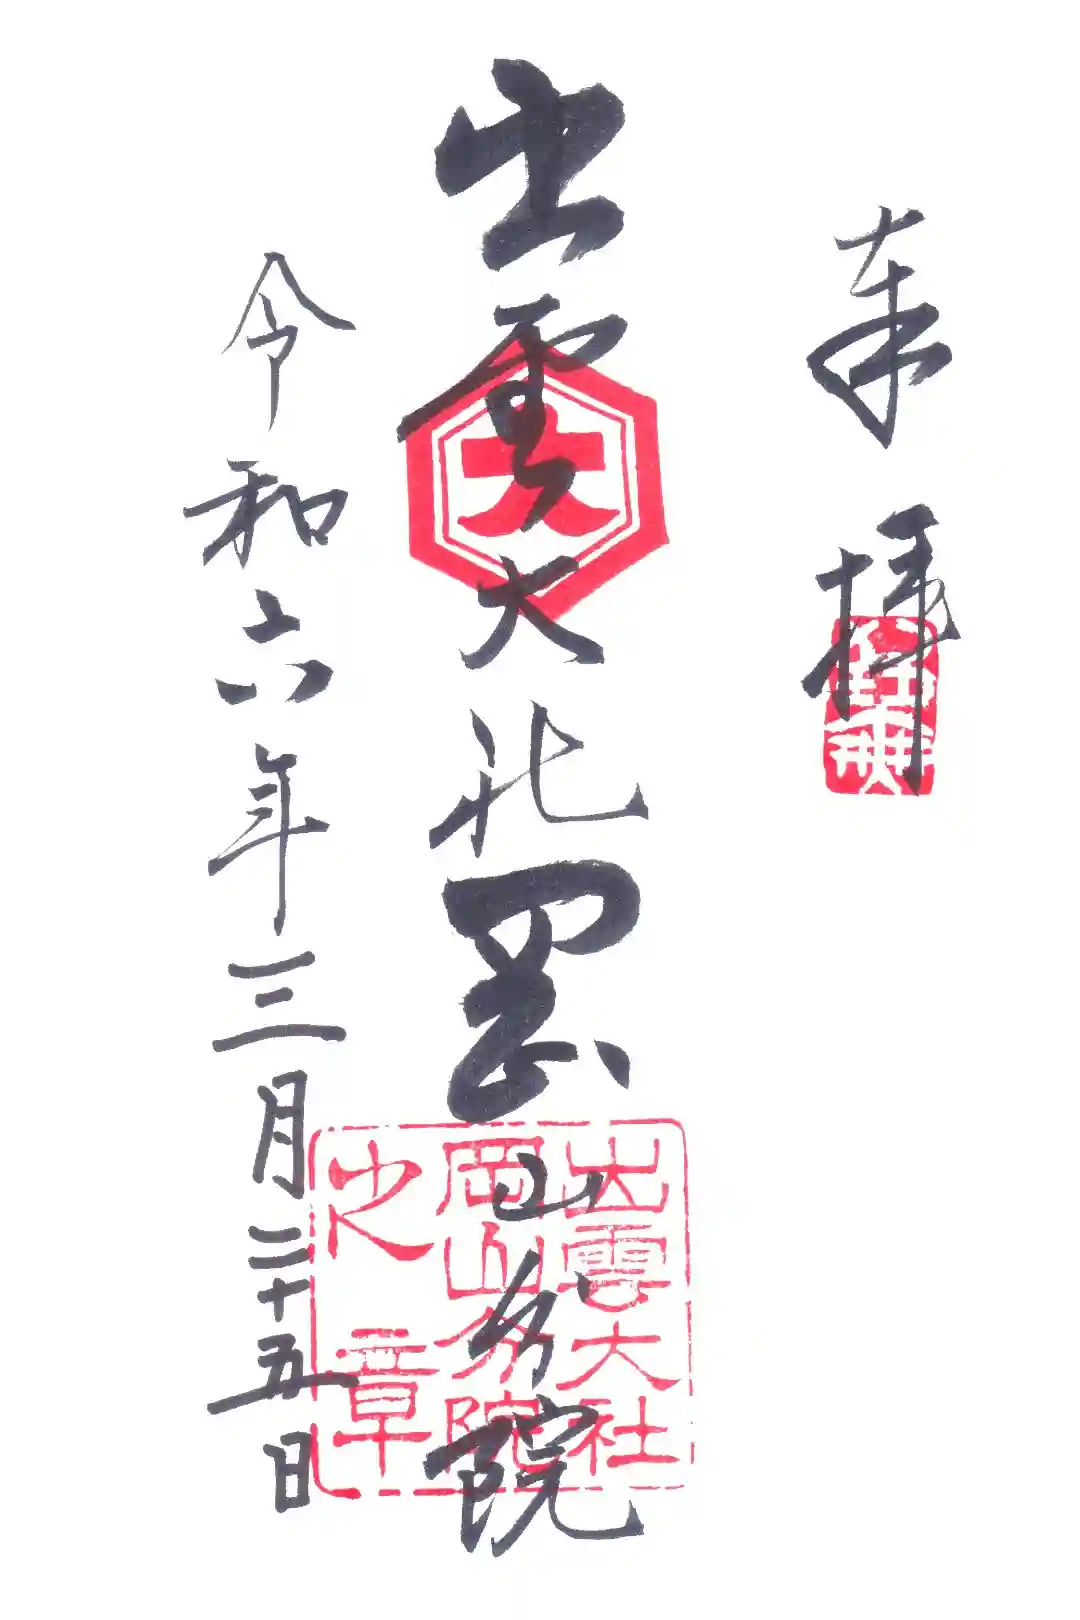 奉拝
出雲大社岡山分院
令和六年三月二十五日
大
出雲大社
岡山分院
之章